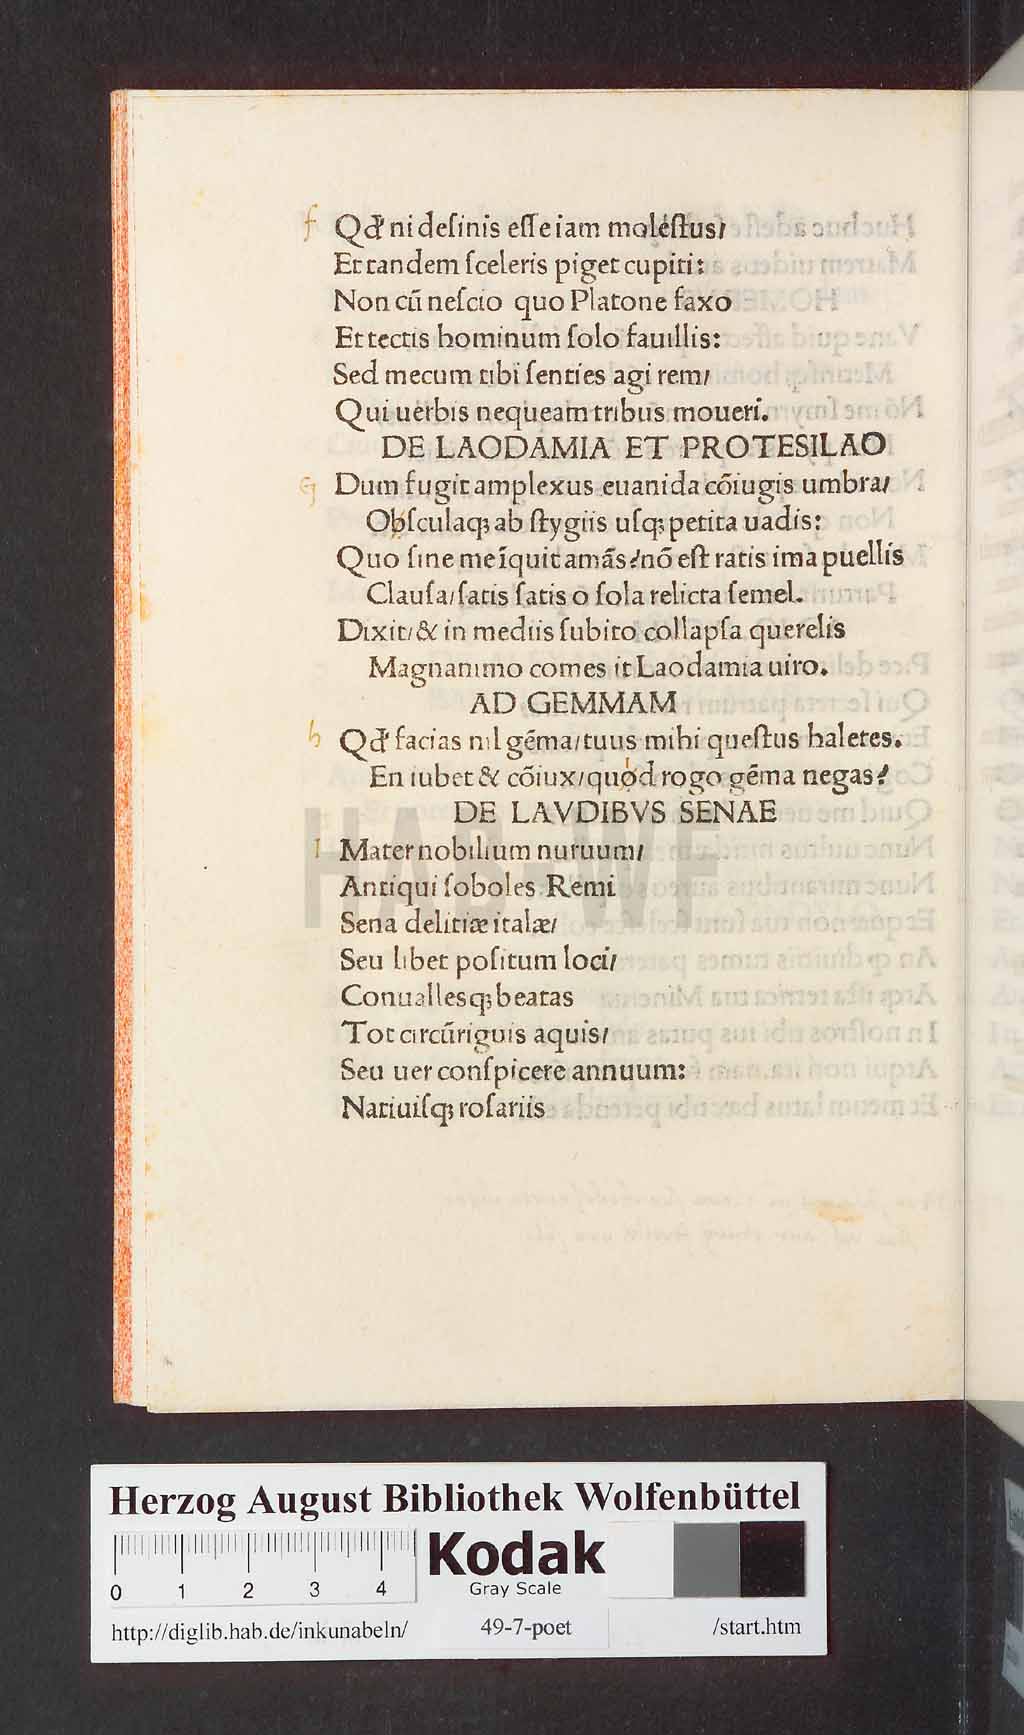 f Qđ ni deſinis eſſe iam moleſtus/
Et tandem ſceleris piget cupiti:
Non cū neſcio quo Platone faxo
Et tectis hominum ſolo fauillis:
Sed mecum tibi ſenties agi rem/
Qui uerbis nequeam tribus moueri.
DE LAODAMIA ET PROTESILAO
G Dum fugit amplexus euanida cōiugis umbra/
Obſculaqꝫ ab ſtygiis uſqꝫ petita uadis:
Quo ſine me īquit amās? nō eſt ratis ima puellis
Clauſa/ſatis ſatis o ſola relicta ſemel.
Dixit/& in mediis ſubito collapſa querelis
Magnanimo comes it Laodamia uiro.
AD GEMMAM
h Qđ facias nil gēma/tuus mihi queſtus haleres.
En iubet & cōiux/quod rogo gēma negas?
DE LAVDIBVS SENAE
I Mater nobilium nuruum/
Antiqui ſoboles Remi
Sena delitiæ italæ/
Seu libet poſitum loci/
Conuallesqꝫ beatas
Tot circūriguis aquis/
Seu uer conſpicere annuum:
Natiuiſqꝫ roſariis
HAB-WF
Herzog August Bibliothek Wolfenbüttel
0 1 2 3 4
Kodak
Gray Scale
http://diglib.hab.de/inkunabeln/ 49-7-poet /start.htm